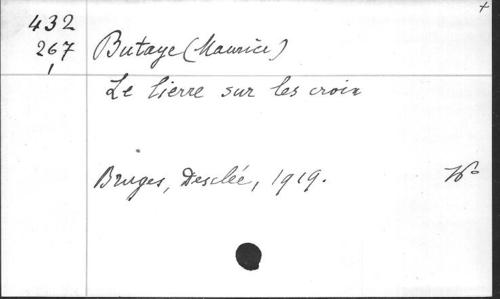 432
267
1
Butaye (Maurice)
Le lierre sur les croix
Bruges, Desclée, 1919.